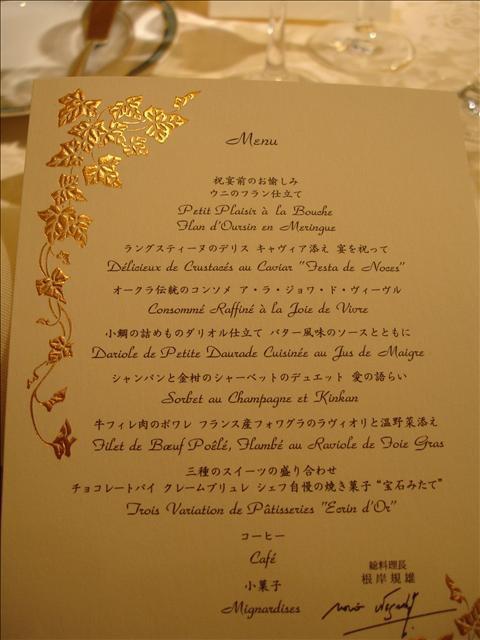 Menu
祝宴前のお愉しみ
ウニのフラン仕立て
Petit Plaisir à la Bouche
Flan d'Oursin en Meringue
ラングスティーヌのデリス キャヴィア添え 宴を祝って
Délicieux de Crustacés au Caviar "Festa de Noces"
オークラ伝統のコンソメ ア・ラ・ジョワ・ド・ヴィーヴル
Consommé Raffiné à la Joie de Vivre
小鯛の詰めものダリオル仕立て バター風味のソースとともに
Dariole de Petite Daurade Cuisinée au Jus de Maigre
シャンパンと金柑のシャーベットのデュエット 愛の語らい
Sorbet au Champagne et Kinkan
牛フィレ肉のポワレ フランス産フォワグラのラヴィオリと温野菜添え
Filet de Bœuf Poêlé, Flambé au Raviole de Foie Gras
三種のスイーツの盛り合わせ
チョコレートパイ クレームブリュレ シェフ自慢の焼き菓子 "宝石みたて"
Trois Variation de Pâtisseries "Ecrin d'Or"
コーヒー
Café
小菓子
Mignardises
総料理長
根岸規雄